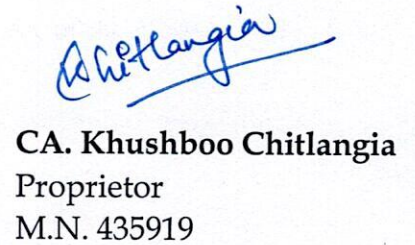 KChitlangia
CA. Khushboo Chitlangia
Proprietor
M.N. 435919